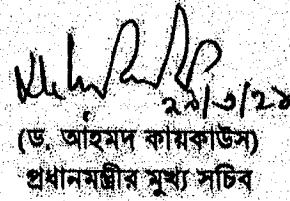 ২১/৩/২১
(ড. আহমদ কায়কাউস)
প্রধানমন্ত্রীর মুখ্য সচিব